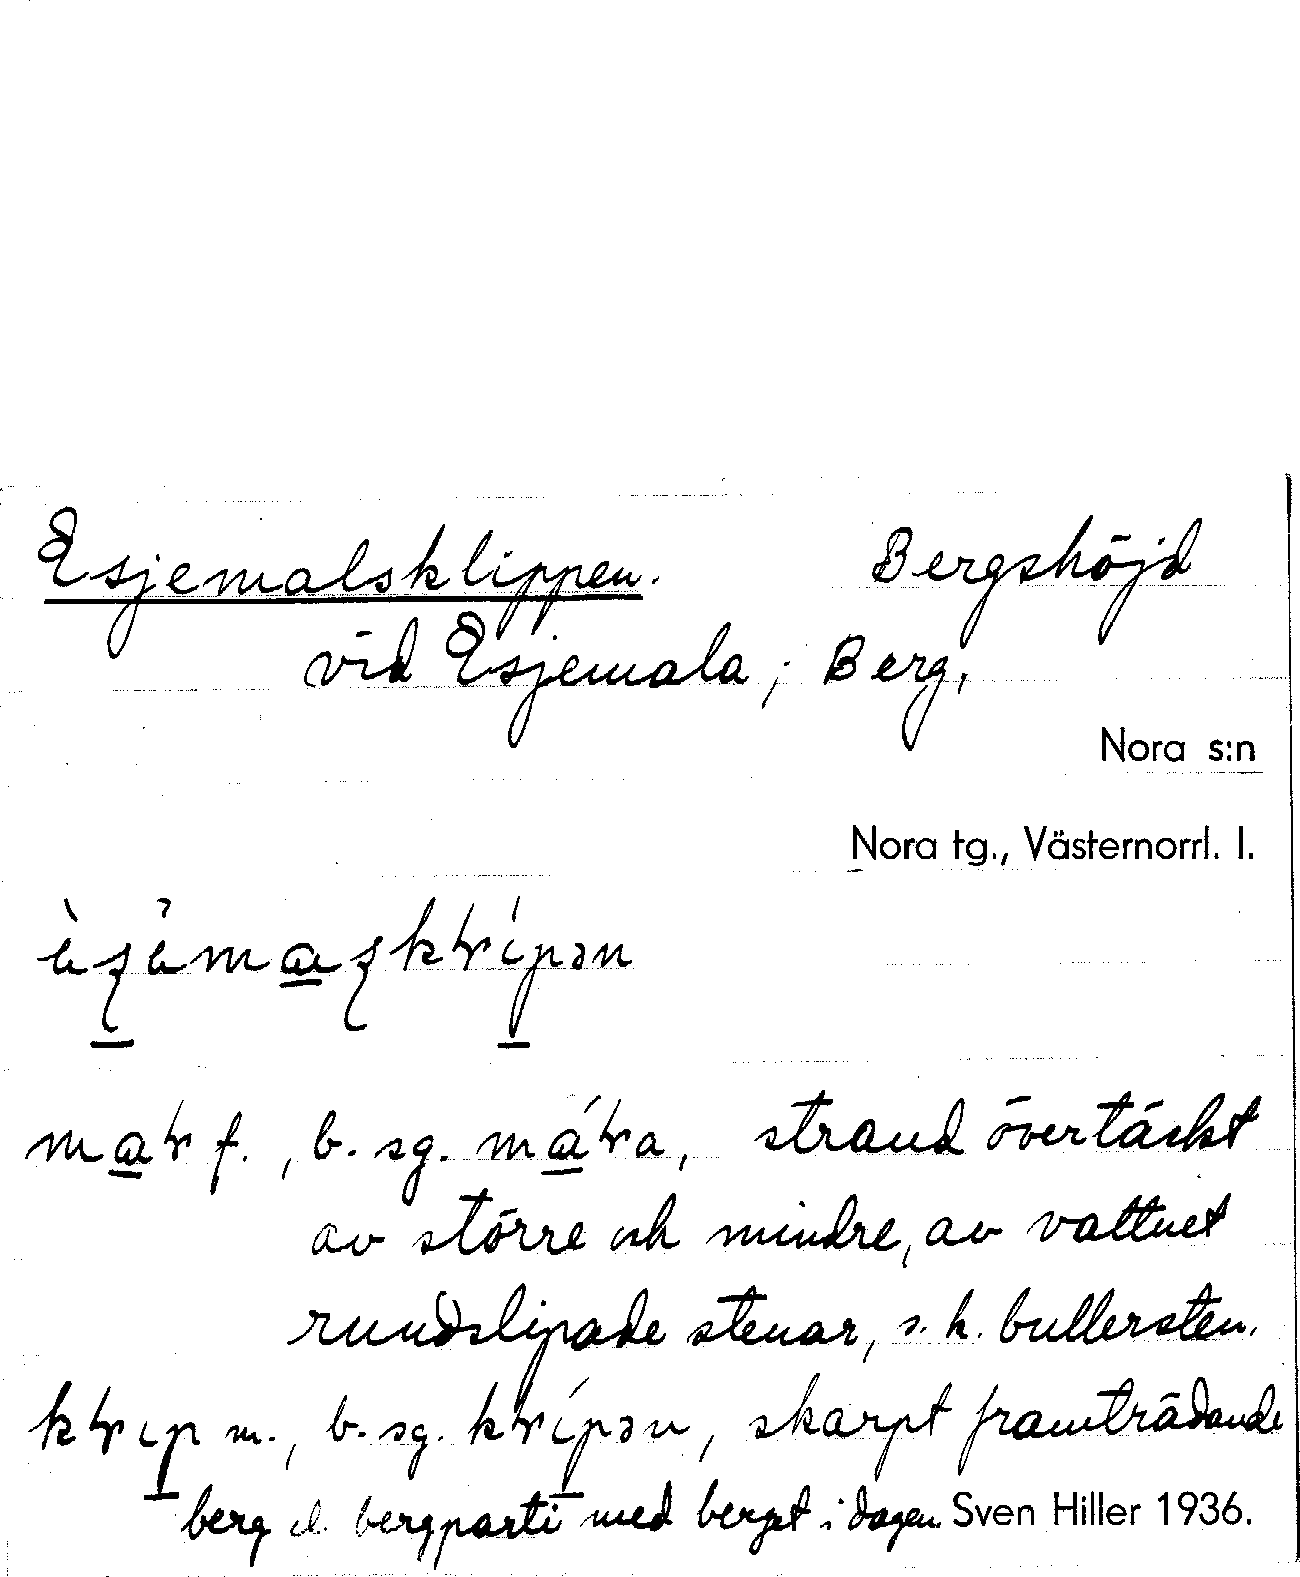 Esjemalsklippen. Bergshöjd
vid Esjemala; Berg,
Nora s:n
Nora tg., Västernorrl. l.
f., b. sg. strand övertäckt
av större och mindre, av vattnet
rundslipade stenar, s. k. bullersten.
m., b. sg. skarpt framträdande
berg el. bergparti med berget i dagen. Sven Hiller 1936.